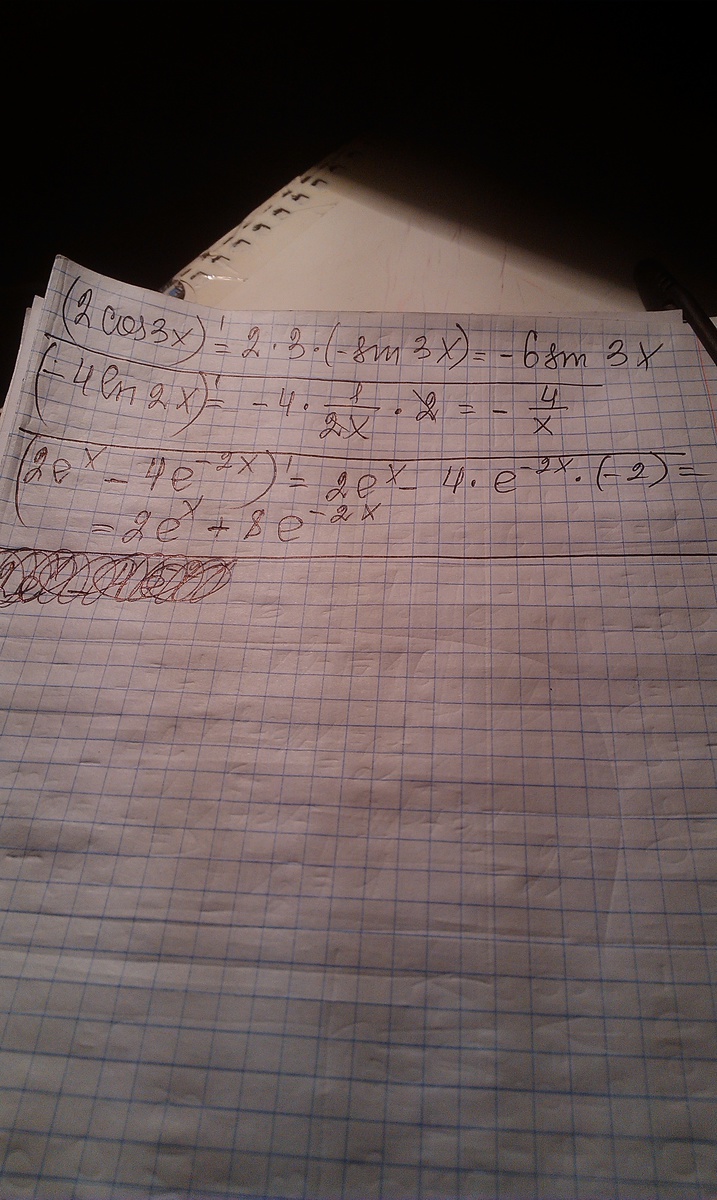 (2cos3x)' = 2 · 3 · (-sin 3x) = -6 sin 3x
(-4ln2x)' = -4 · 1/2x · 2 = - 4/x
(2e^x - 4e^-2x)' = 2e^x - 4 · e^-2x · (-2) =
= 2e^x + 8e^-2x